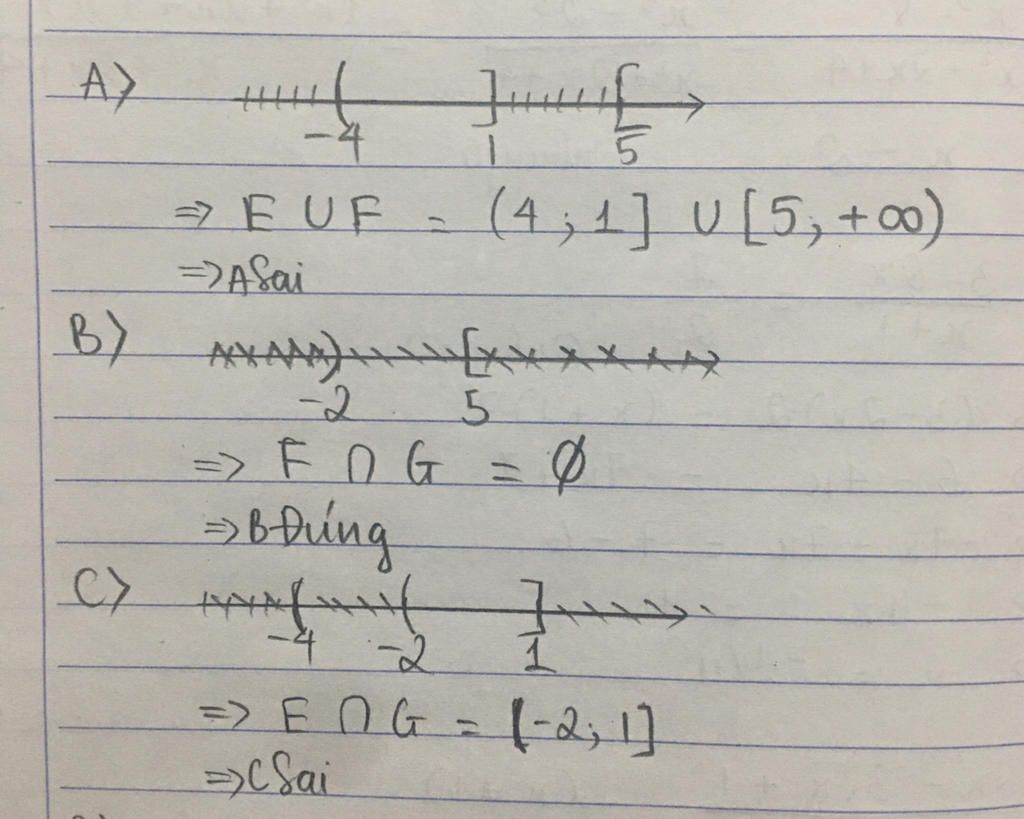 A>
-4 1 5
=> E ∪ F = (4 ; 1] ∪ [5; +∞)
=> A Sai
B>
-2 5
=> F ∩ G = Ø
=> B Đúng
C>
-4 -2 1
=> E ∩ G = [-2; 1]
=> C Sai